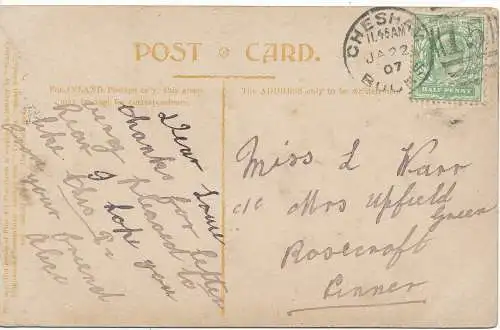 POST CARD.
For INLAND Postage only, this space
may be used for correspondence
The ADDRESS only to be written here
CHESHAM
11.45AM
JA 22
07
BUCKS
HALF PENNY
Dear
thanks for letter
very pleased to
hear
I hope you
like this P.
from your friend
Miss L Warr
c/o Mrs Upfield
Green
Rosecroft
Pinner